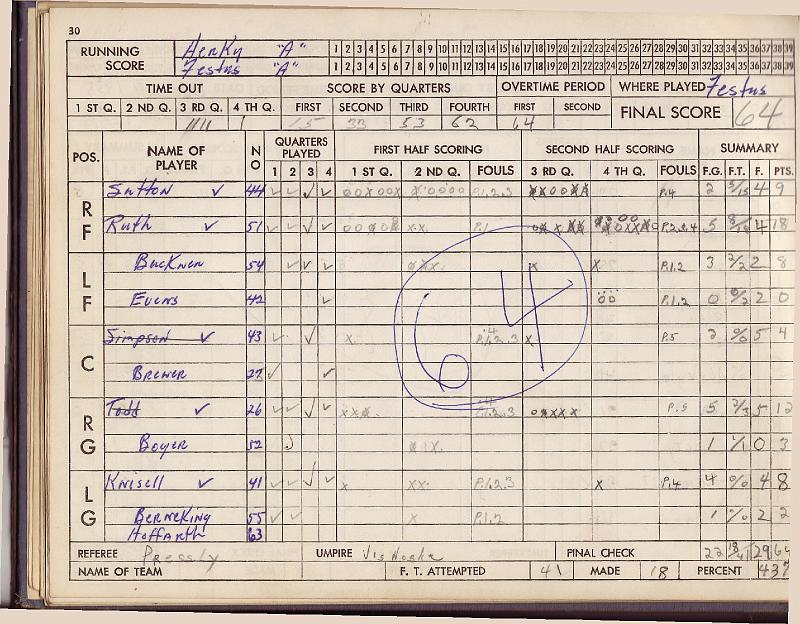 30
RUNNING SCORE Herky "A" 1 2 3 4 5 6 7 8 9 10 11 12 13 14 15 16 17 18 19 20 21 22 23 24 25 26 27 28 29 30 31 32 33 34 35 36 37 38 39
Festus "A" 1 2 3 4 5 6 7 8 9 10 11 12 13 14 15 16 17 18 19 20 21 22 23 24 25 26 27 28 29 30 31 32 33 34 35 36 37 38 39
TIME OUT SCORE BY QUARTERS OVERTIME PERIOD WHERE PLAYED Festus
1 ST Q. 2 ND Q. 3 RD Q. 4 TH Q. FIRST SECOND THIRD FOURTH FIRST SECOND FINAL SCORE 64
15 33 53 62 64
POS. NAME OF PLAYER NO QUARTERS PLAYED FIRST HALF SCORING SECOND HALF SCORING SUMMARY
1 2 3 4 1 ST Q. 2 ND Q. FOULS 3 RD Q. 4 TH Q. FOULS F.G. F.T. F. PTS.
RF Sutton 44 P.1.2.3 P.4 2 5/15 4 9
Ruth 51 P.1 5 4 18
LF Bucknen 54 P.1.2 3 2/2 2 8
Evens 42 P.1.2 0 0/2 2 0
64
C Simpson 43 P.1.2.3 4 P.5 2 0/0 5 4
Brewer 27
RG Todd 26 P.1.2.3 4 P.5 5 2/3 5 12
Boyer 52 1 1/1 0 3
LG Knisell 41 P.1.2.3 P.4 4 0/0 4 8
Berneking 55 P.1.2 1 0/0 2 2
Hoffarth 63
REFEREE Pressly UMPIRE FINAL CHECK 22 18/41 29 64
NAME OF TEAM F. T. ATTEMPTED 41 MADE 18 PERCENT 437